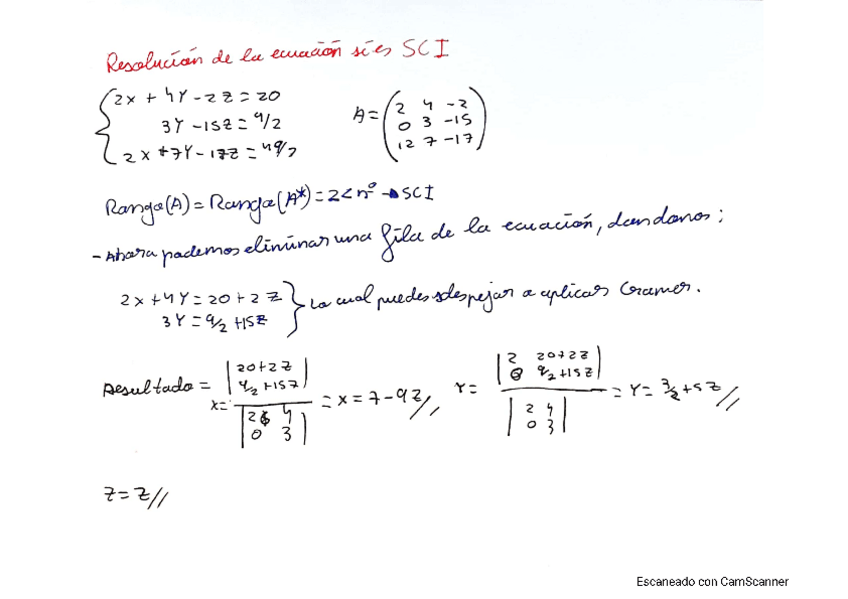 Resolución de la ecuación si es SCI
2x + 4Y - 2Z = 20
3Y - 15Z = 9/2
2x + 7Y - 17Z = 49/2
A = (2 4 -2
0 3 -15
12 7 -17)
Rango(A) = Rango(A*) = 2 < nº → SCI
- Ahora podemos eliminar una fila de la ecuación, dandonos;
2x + 4Y = 20 + 2Z
3Y = 9/2 + 15Z
La cual puedes despejar o aplicar Cramer.
Resultado =
x = |20+2Z
9/2 + 15Z| / |2 4
0 3| = x = 7 - 9Z//
Y = |2 20+2Z
0 9/2 + 15Z| / |2 4
0 3| = Y = 3/2 + 5Z//
Z = Z//
Escaneado con CamScanner